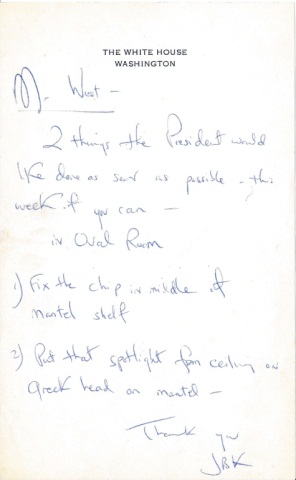 THE WHITE HOUSE
WASHINGTON
Mr West -
2 things the President would
like done as soon as possible - this
week if you can -
in Oval Room
1) Fix the chip in middle of
mantel shelf
2) Put that spotlight from ceiling on
Greek head on mantel -
Thank you
JBK